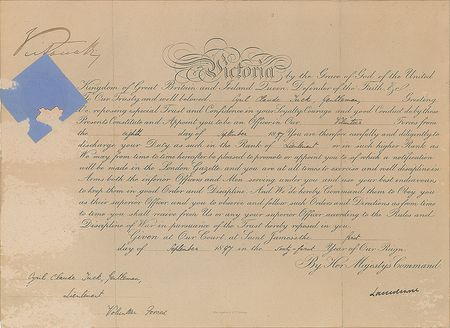 Victoria by the Grace of God of the United
Kingdom of Great Britain and Ireland Queen, Defender of the Faith &c
To Our Trusty and well beloved Cyril Claude Tuck, Gentleman, Greeting
We reposing especial Trust and Confidence in your Loyalty Courage and good Conduct do by these
Presents Constitute and Appoint you to be an Officer in Our Volunteer Forces from
the eighth day of September 1897 You are therefore carefully and diligently to
discharge your Duty as such in the Rank of Lieutenant or in such higher Rank as
We may from time to time hereafter be pleased to promote or appoint you to of which a notification
will be made in the London Gazette and you are at all times to exercise and well discipline in
Arms both the inferior Officers and Men serving under you and use your best endeavours
to keep them in good Order and Discipline. And We do hereby Command them to Obey you
as their superior Officer and you to observe and follow such Orders and Directions as from time
to time you shall receive from Us or any your superior Officer according to the Rules and
Discipline of War in pursuance of the Trust hereby reposed in you.
Given at Our Court, at Saint James's the first
day of September 1897 in the sixty-first Year of Our Reign
By Her Majesty's Command
Cyril Claude Tuck, Gentleman
Lieutenant
Volunteer Forces
Lansdowne